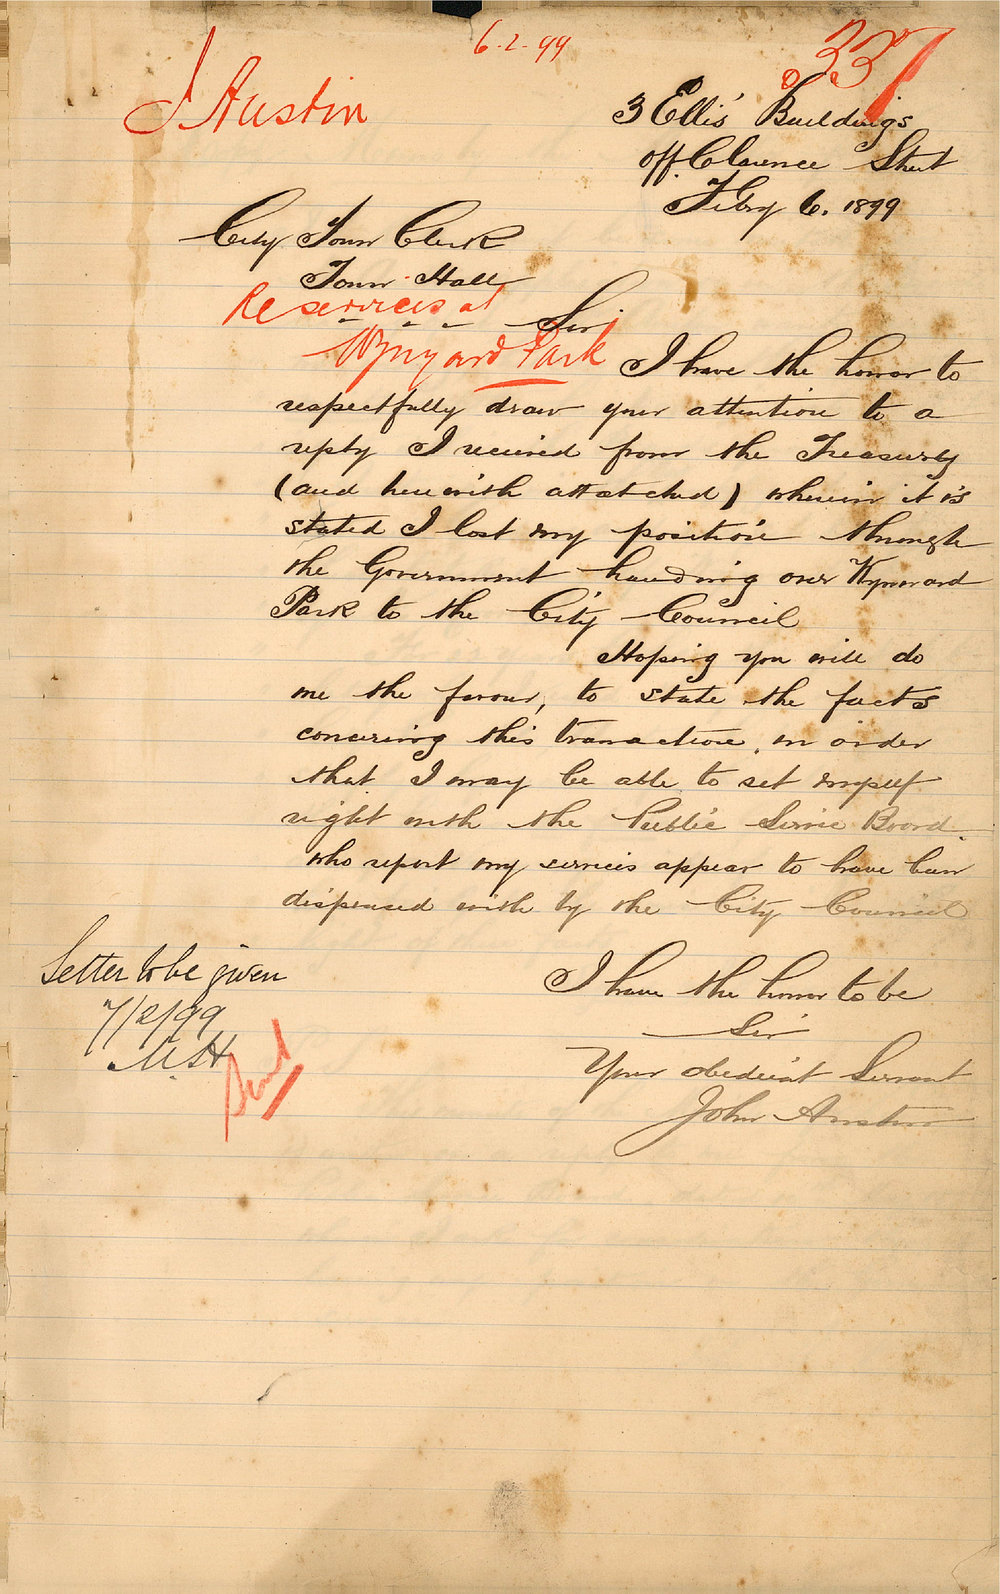 6.2.99
337
J Austin
3 Ellis' Buildings
off Clarence Street
Febry 6. 1899
City Town Clerk
Town Hall
Re services at
Wynyard Park
Sir
I have the honor to
respectfully draw your attention to a
reply I received from the Treasury
(and herewith attatched) wherein it is
stated I lost my position through
the Government handing over Wynyard
Park to the City Council
Hoping you will do
me the favour, to state the facts
concering this transaction, in order
that I may be able to set myself
right with the Public Service Board.
who report my services appear to have been
dispensed with by the City Council
I have the honor to be
Sir
Your obedient Servant
John Austin
Letter to be given
7/2/99